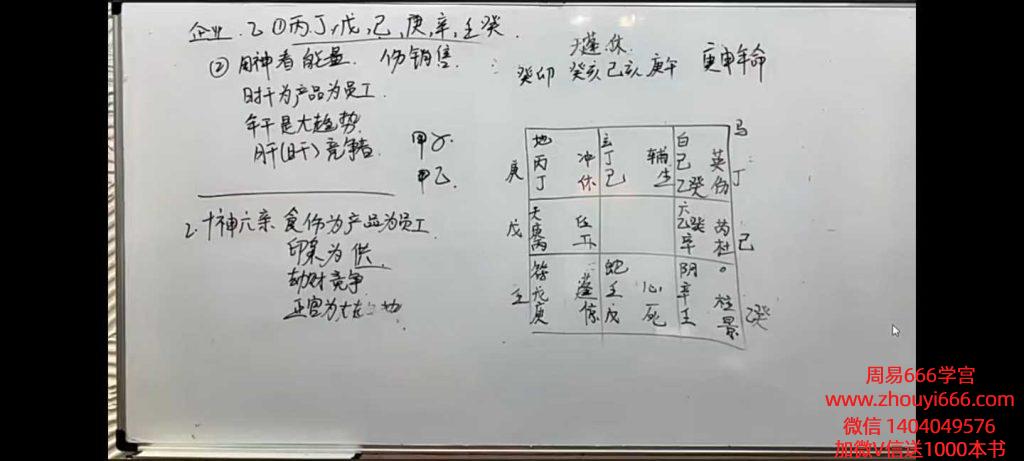 企业. 乙 ①丙,丁,戊,己,庚,辛,壬癸.
② 用神看能量. 伤销售.
时干为产品为员工.
年干是大趋势.
月干(日干)竞争者.
甲
甲乙.
2. 十神六亲 食伤为产品为员工
印枭为供
劫财竞争
正官为
天蓬.休.
癸卯 癸亥 己亥 庚午 庚申年命
马
地 玄 白
丙 冲 丁 辅 己 英
庚 丁 休 己 生 乙癸 伤 丁
天 六
庚 任 乙癸 芮
戊 丙 辛 杜 己
符 蛇 阴 。
蓬 壬 心 辛 柱
壬 庚 惊 戊 死 壬 景 乙癸
周易666学宫
www.zhouyi666.com
微信 1404049576
加微V信送1000本书